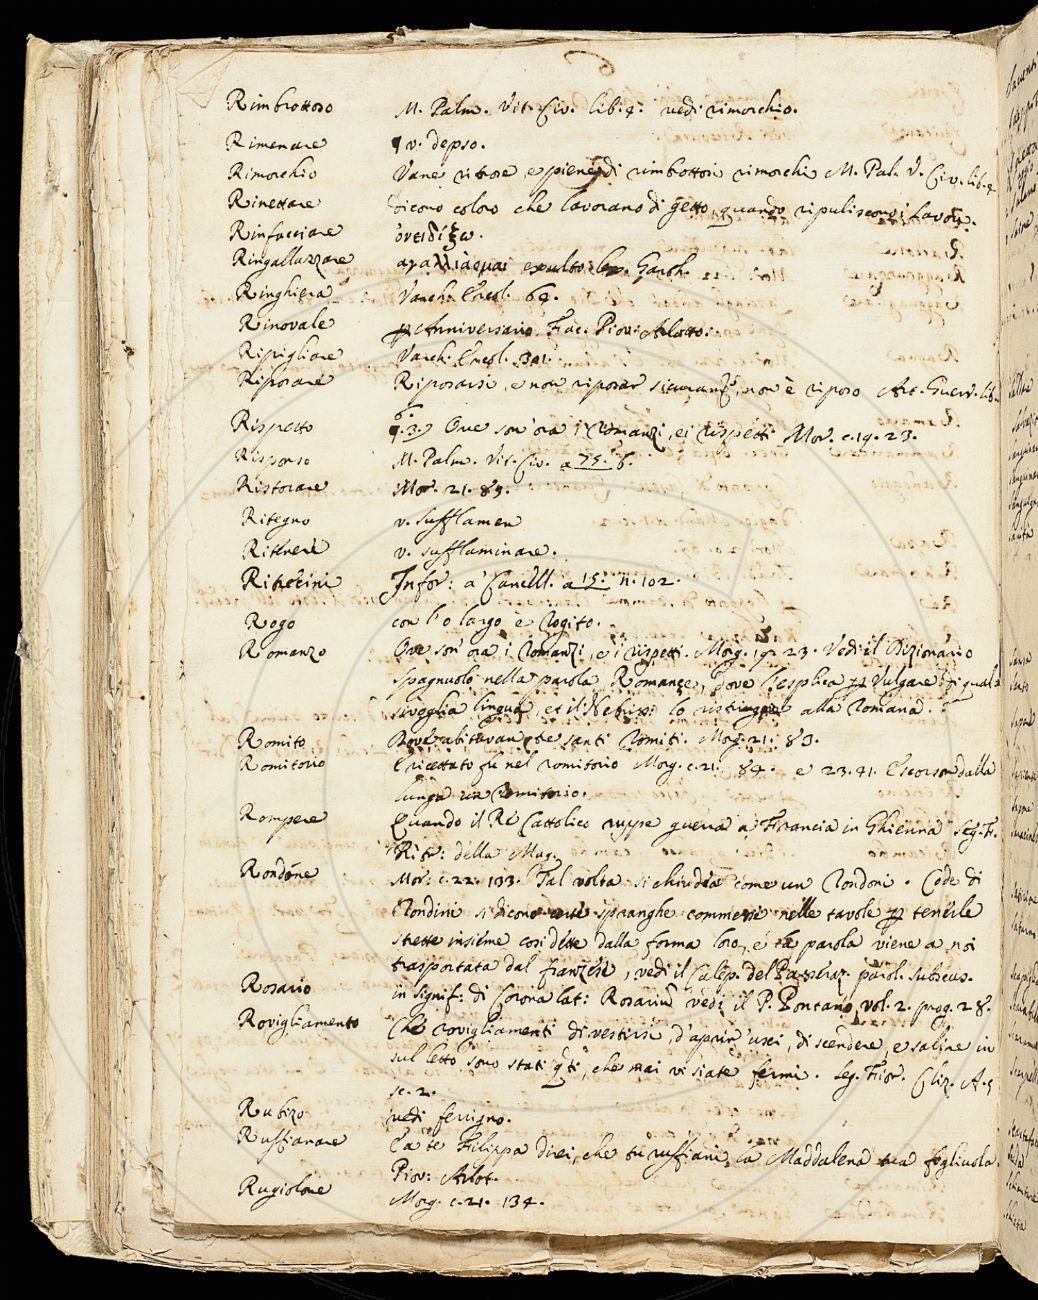 Rimbrottoso M. Palm. Vit. Civ. lib. 4. vedi rimorchio.
Rimenare v. depso.
Rimorchio Vane vittore e piene di rimbottosi rimorchi M. Pal. V. Civ. lib. 4
Rinettare dicono coloro che lavorano di getto, quando ripuliscono i lavori.
Rinfacciare ὀνειδίζω.
Ringalluzzare αγαλλιάομαι exulto lex. Gaoth.
Ringhiera Varch. Ercol. 64.
Rinovale p Anniversario Fac. Piov: Arlotto.
Ripigliare Varch. Ercol. 301.
Riposare Riposarsi, e non riposar sicuramte, non è riposo Art. Guerr. lib.
6.
Rispetto 9.3. Ove son' ora i romanzi, ei rispetti Mor. c. 19. 23.
Risponso M. Palm. Vit. Civ. a 75. 6.
Ristorare Mor. 21. 89.
Ritegno v. sufflamen
Ritenere v. sufflaminare.
Ritretini Infor: a' Cancell. a 15. n. 102.
Rogo con l'o largo e rogito.
Romanzo Ove son' ora i romanzi, e i rispetti. Morg. 19. 23. Vedi il Dizionario
Spagnuolo nella parola Romance, dove l'esplica p Vulgare di qual
sivoglia lingua, et il Nebriss: lo ristringe alla romana.
Romito Dove abitavan tre santi romiti. Morg. 21. 83.
Romitorio E ricettato fu nel romitorio Morg. c. 21. 84. e 23. 41. E scorson dalla
lunga un romitorio.
Rompere Quando il Re Cattolico ruppe guerra a Francia in Ghienna Seg. F.
Ritr: della Mag.
Rondone Mor: c. 22. 133. Tal volta si chiudea come un rondoni. Code di
rondini si dicono certe spranghe commesse nelle tavole p tenerle
strette insieme, cosi dette dalla forma loro, e la parola viene a noi
trasportata dal franzese, vedi il Calep. del Passeraz. parol. subscus.
Rosario in signif: di Corona lat: Rosariũ vedi il P. Pontano vol. 2. prog. 28.
Rovigliamento Che rovigliamenti di vestirsi, d'aprir' usci, di scendere, e salire in
sul letto sono stati qti, che mai vi siate fermi. Seg. Fior. Cliz. A. 5
sc. 2.
Rubizo vedi ferrigno.
Ruffianare E a te Filippa direi, che tu ruffiani la Maddalena tua figliuola.
Piov: Arlot.
Rugiolone Morg. c. 21. 134.